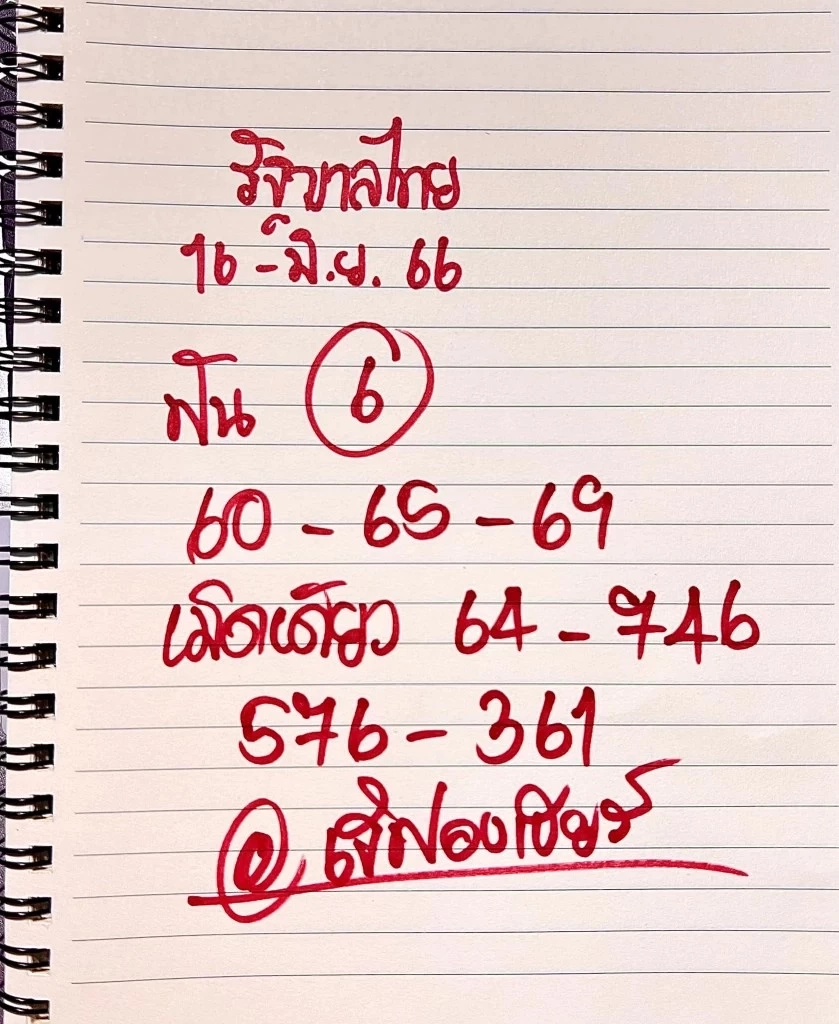 รัฐบาลไทย
16 - มิ.ย. 66
ฟัน 6
60 - 65 - 69
เม็ดเดียว 64 - 746
576 - 361
@ เจ๊ฟองเบียร์